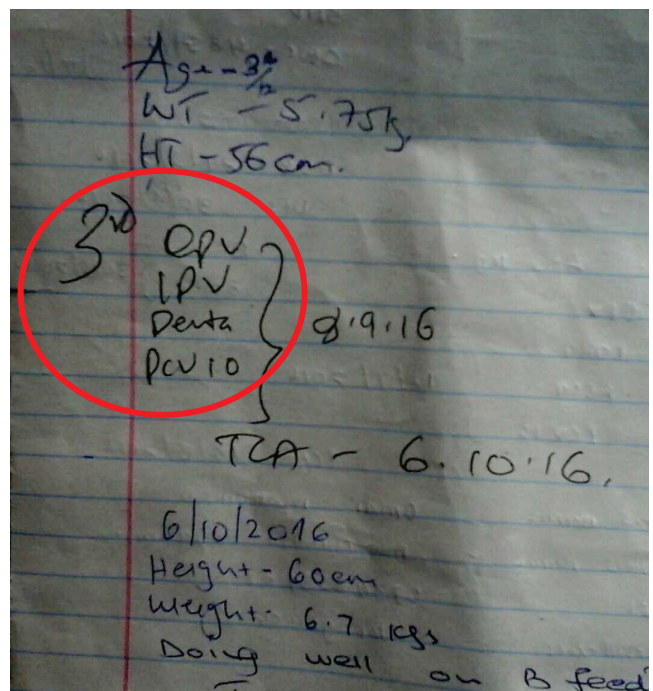 Age - 3/12
WT - 5.75kg.
HT - 56cm.
3rd OPV
IPV
Penta
PCV10
8.9.16
TCA - 6.10.16.
6/10/2016
Height - 60cm
Weight - 6.7 kgs
Doing well on B feed